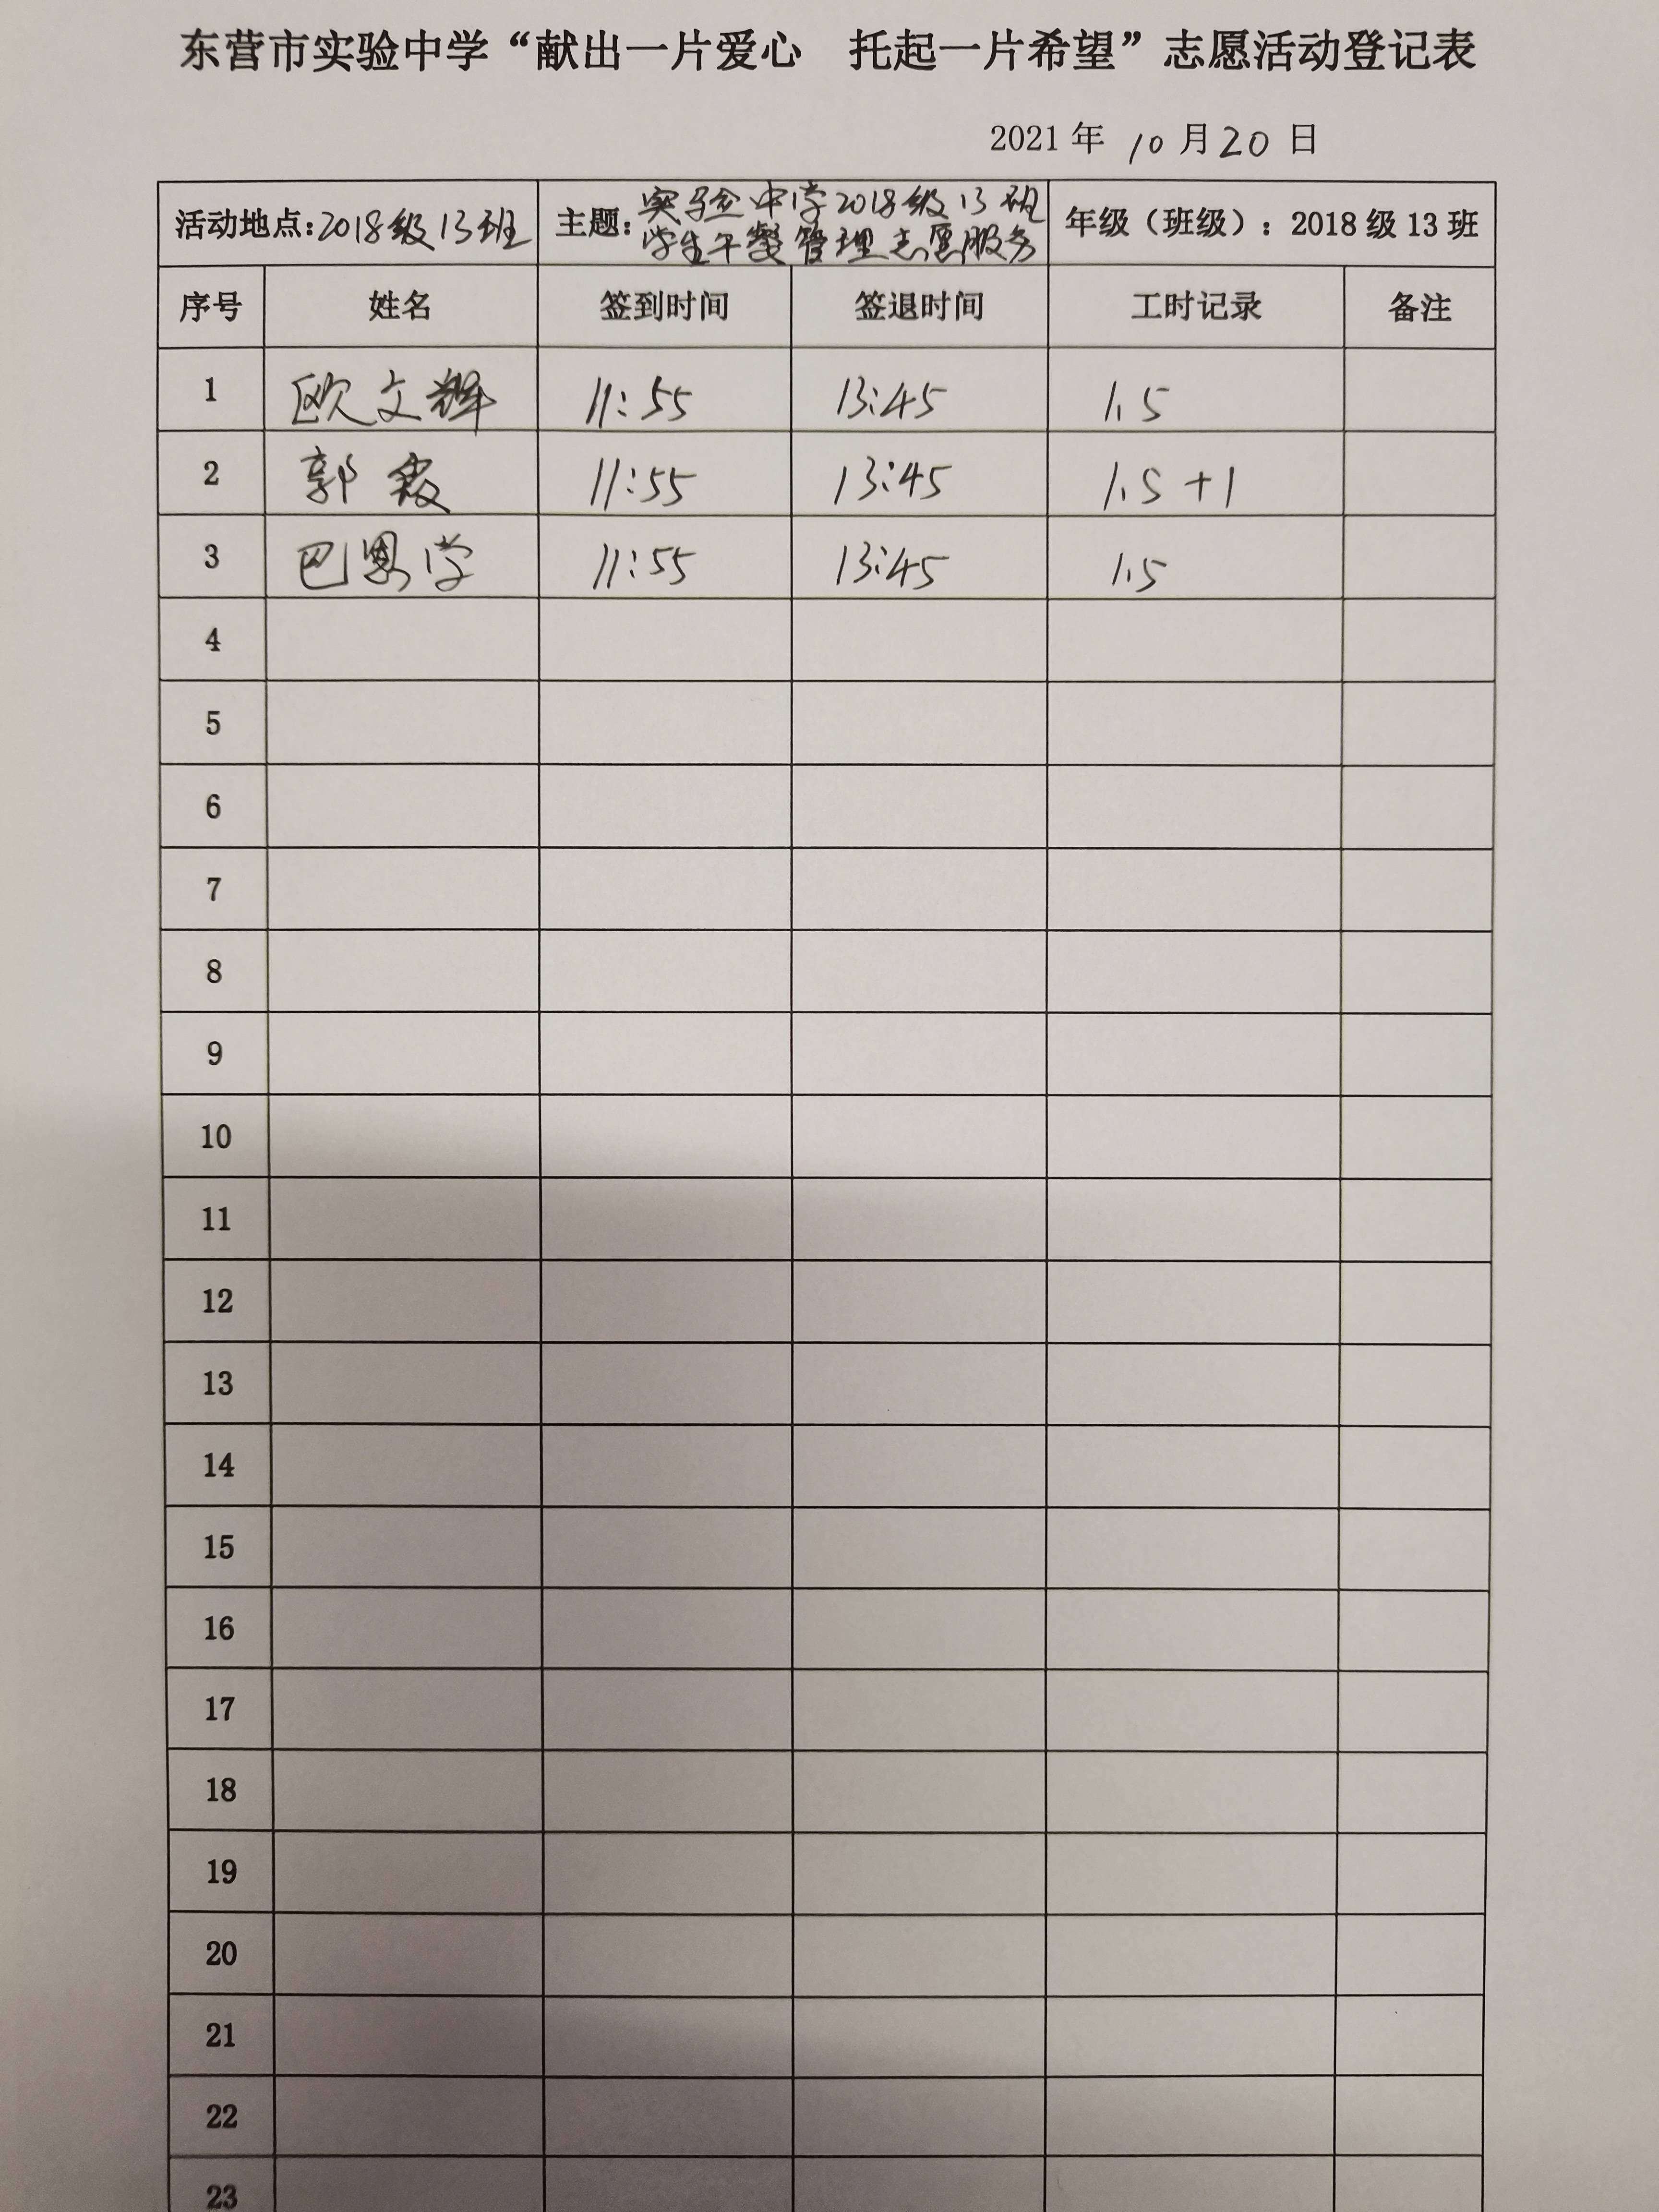 东营市实验中学“献出一片爱心 托起一片希望”志愿活动登记表
2021 年 10 月 20 日
活动地点:2018级13班 主题: 实验中学2018级13班 学生午餐管理志愿服务 年级（班级）: 2018 级 13 班
序号 姓名 签到时间 签退时间 工时记录 备注
1 欧文辉 11:55 13:45 1.5
2 郭霞 11:55 13:45 1.5 +1
3 巴恩学 11:55 13:45 1.5
4
5
6
7
8
9
10
11
12
13
14
15
16
17
18
19
20
21
22
23